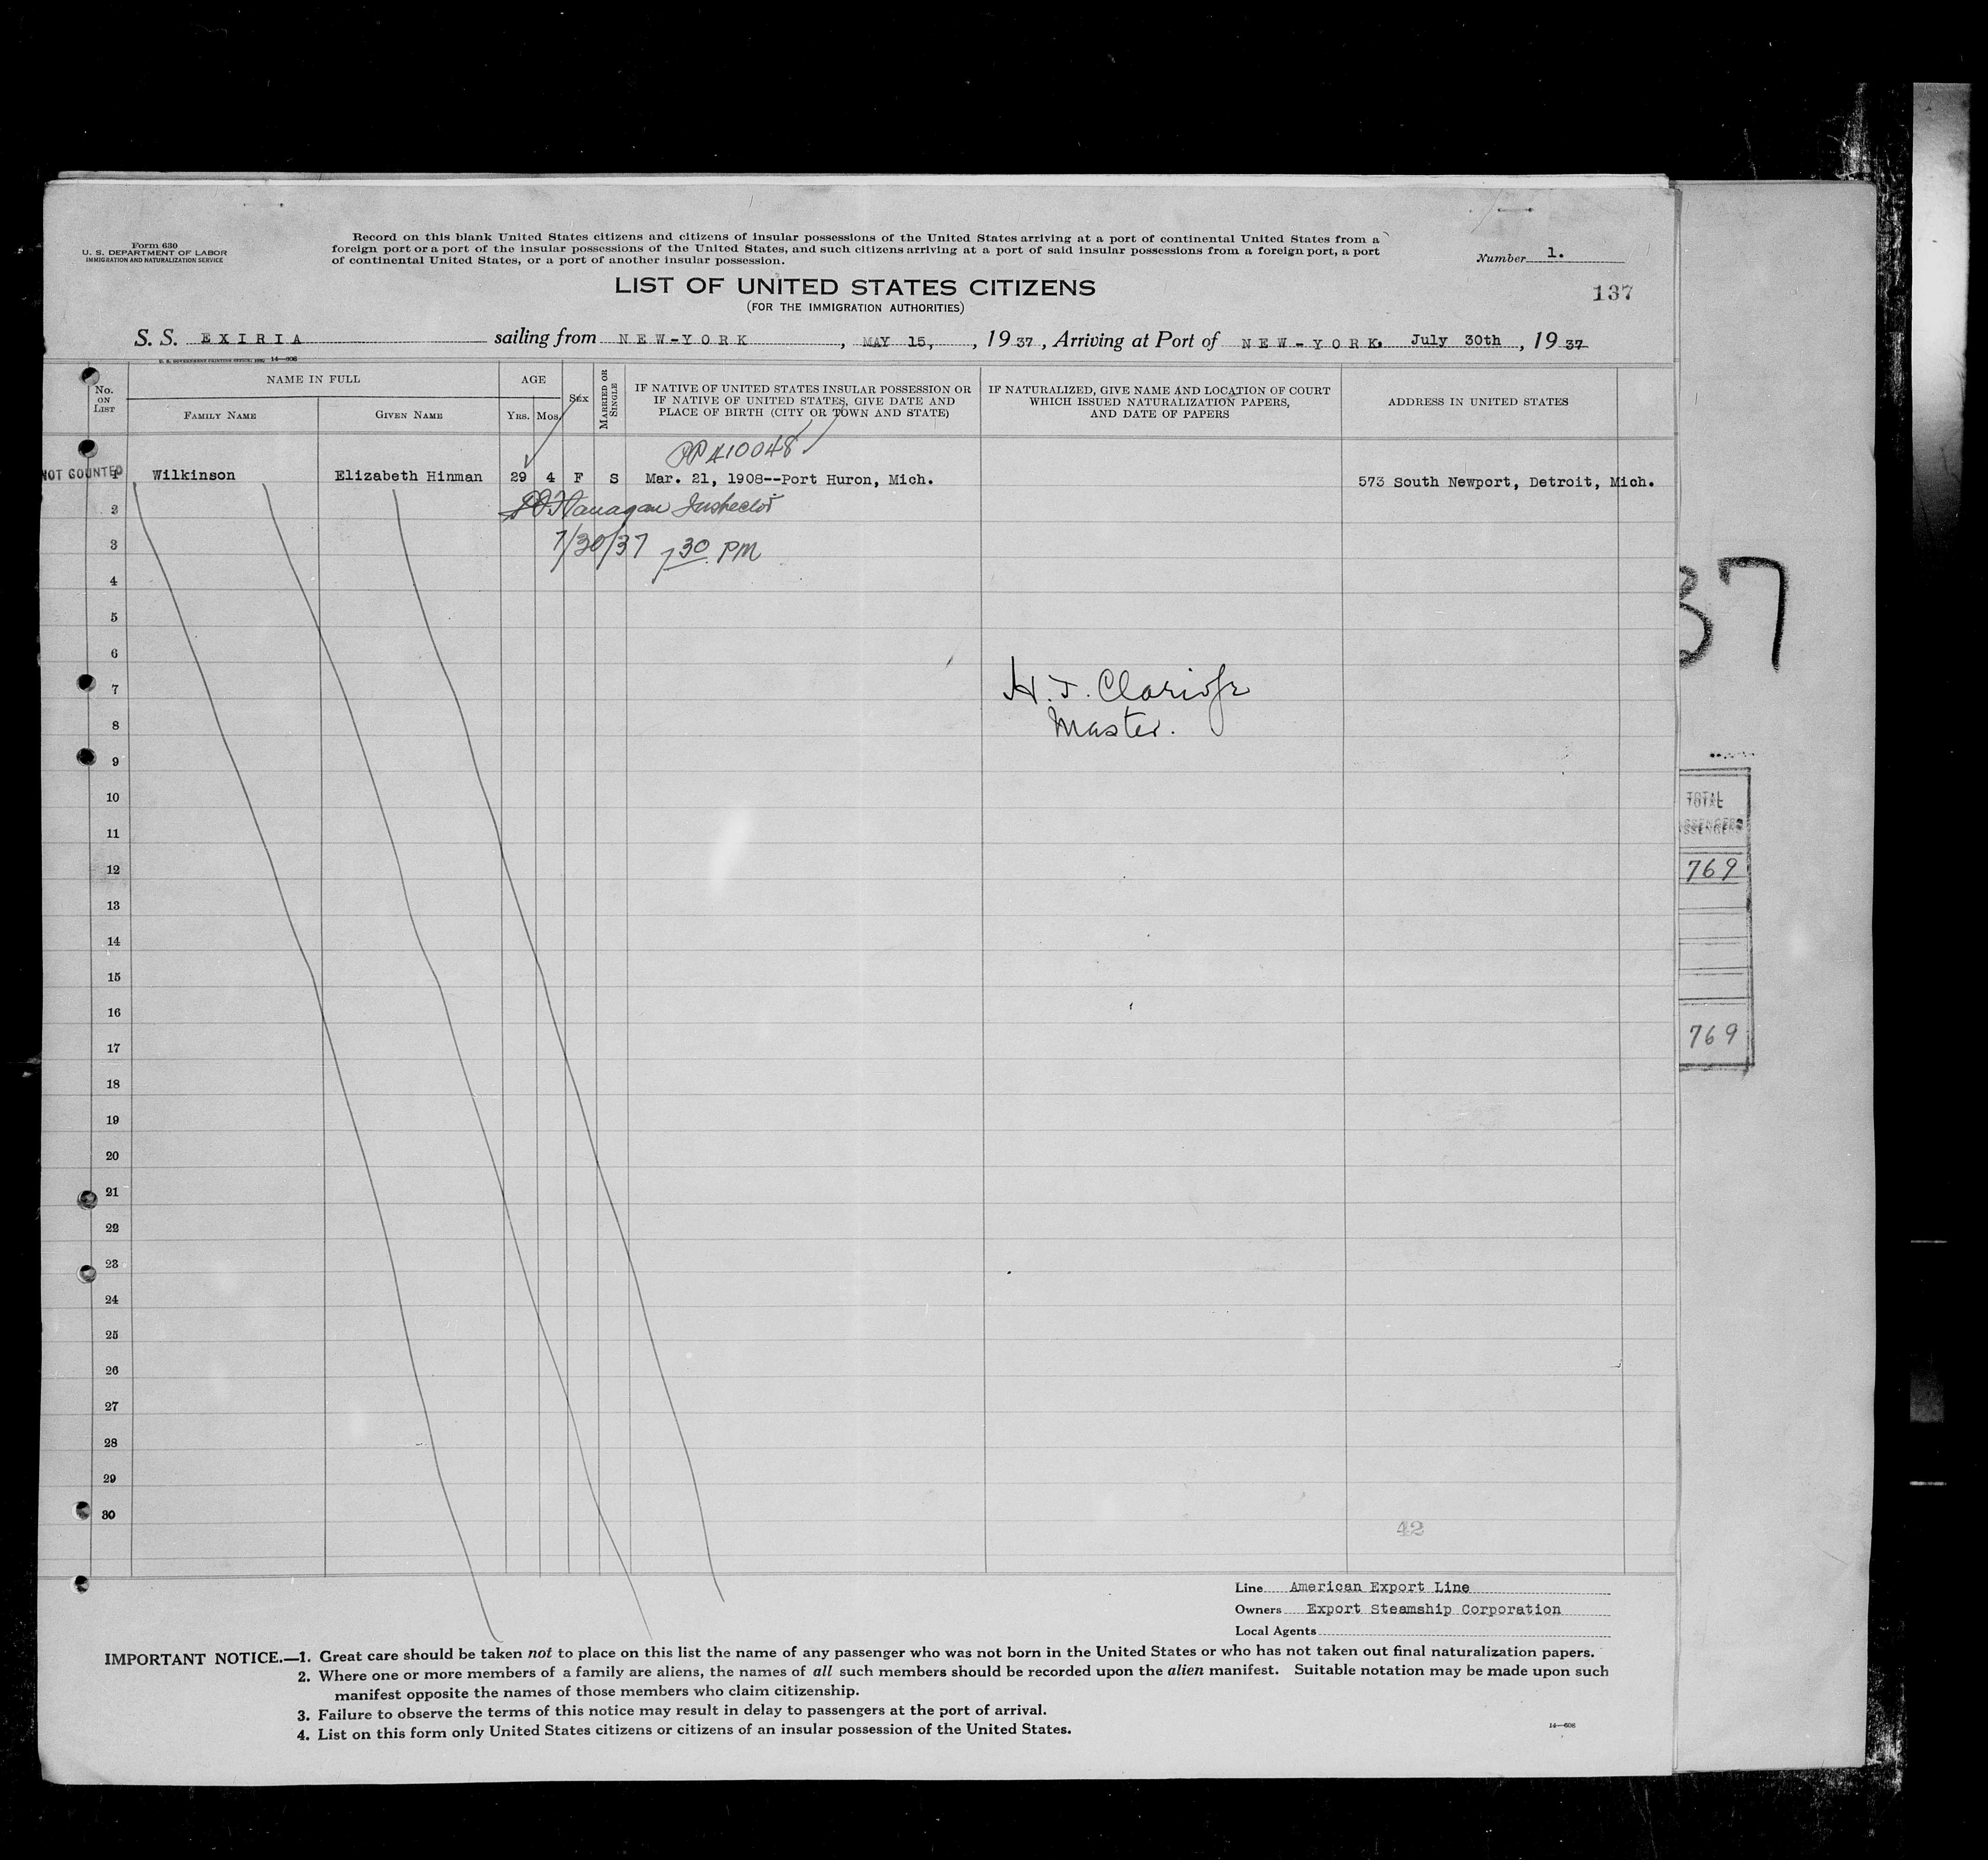 Form 630
U. S. DEPARTMENT OF LABOR
IMMIGRATION AND NATURALIZATION SERVICE
Record on this blank United States citizens and citizens of insular possessions of the United States arriving at a port of continental United States from a
foreign port or a port of the insular possessions of the United States, and such citizens arriving at a port of said insular possessions from a foreign port, a port
of continental United States, or a port of another insular possession.
Number 1.
LIST OF UNITED STATES CITIZENS
(FOR THE IMMIGRATION AUTHORITIES)
137
S. S. EXIRIA sailing from NEW-YORK, MAY 15, , 1937, Arriving at Port of NEW-YORK. July 30th, 1937
14-608
No. ON LIST
NAME IN FULL
FAMILY NAME
GIVEN NAME
AGE
YRS.
MOS.
SEX
MARRIED OR SINGLE
IF NATIVE OF UNITED STATES INSULAR POSSESSION OR
IF NATIVE OF UNITED STATES, GIVE DATE AND
PLACE OF BIRTH (CITY OR TOWN AND STATE)
IF NATURALIZED, GIVE NAME AND LOCATION OF COURT
WHICH ISSUED NATURALIZATION PAPERS,
AND DATE OF PAPERS
ADDRESS IN UNITED STATES
PP 410048
NOT COUNTED 1 Wilkinson Elizabeth Hinman 29 4 F S Mar. 21, 1908--Port Huron, Mich. 573 South Newport, Detroit, Mich.
2 Flanagan Inspector
3 7/30/37 7 30 PM
4
5
6
37
7 H. J.
8 Master.
9
10
TOTAL
PASSENGERS
11
12
769
13
14
15
16
17
769
18
19
20
21
22
23
24
25
26
27
28
29
30
42
Line American Export Line
Owners Export Steamship Corporation
Local Agents
IMPORTANT NOTICE.—1. Great care should be taken not to place on this list the name of any passenger who was not born in the United States or who has not taken out final naturalization papers.
2. Where one or more members of a family are aliens, the names of all such members should be recorded upon the alien manifest. Suitable notation may be made upon such
manifest opposite the names of those members who claim citizenship.
3. Failure to observe the terms of this notice may result in delay to passengers at the port of arrival.
4. List on this form only United States citizens or citizens of an insular possession of the United States.
14-608